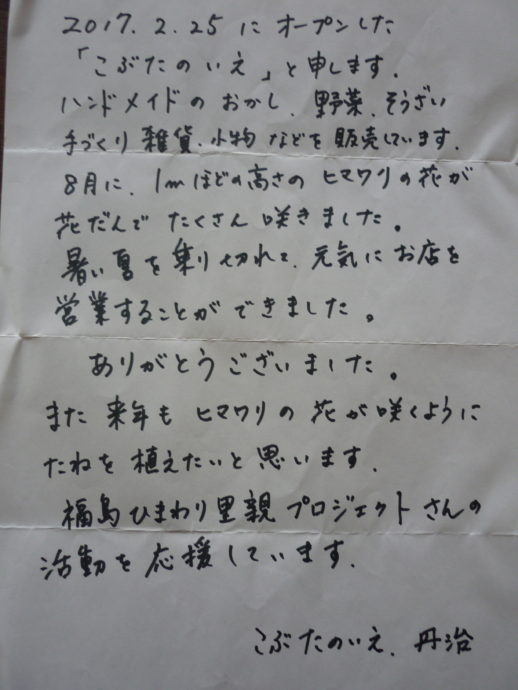 2017. 2. 25 に オープンした
「こぶたのいえ」と申します.
ハンドメイドの おかし、野菜、そうざい
手づくり 雑貨、小物 などを 販売しています.
8月に、1mほどの高さの ヒマワリの花が
花だんで たくさん 咲きました。
暑い夏を乗り切れて、元気にお店を
営業することができました。
ありがとうございました。
また 来年も ヒマワリの 花が 咲くように
たねを 植えたいと 思います.
福島ひまわり里親プロジェクトさんの
活動を応援しています.
こぶたのいえ. 丹治